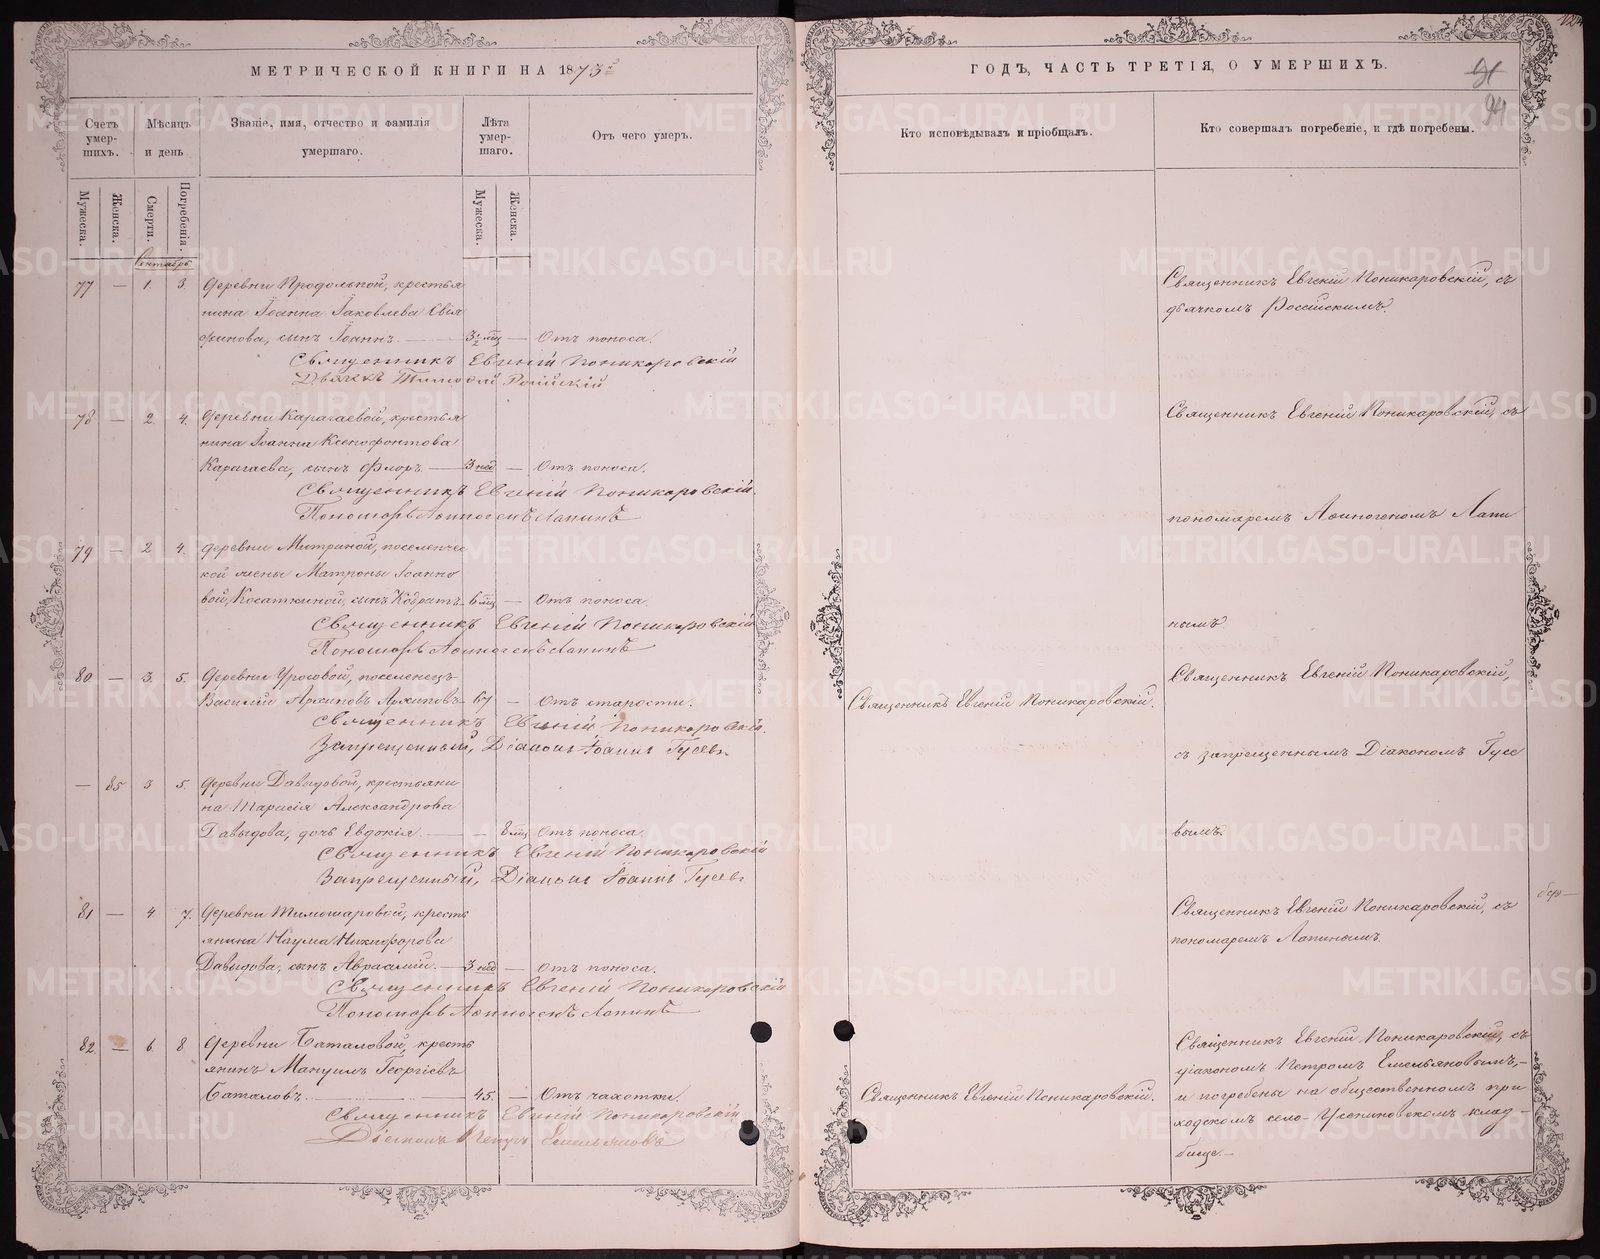 МЕТРИЧЕСКОЙ КНИГИ НА 1873й
Счетъ умер-шихъ.
Мѣсяцъ и день
Званіе, имя, отчество и фамилія умершаго.
Лѣта умер-шаго.
Отъ чего умеръ.
Мужеска.
Женска.
Смерти.
Погребенія.
Мужеска.
Женска.
Сентябрь
77 — 1. 3. Деревни Продольной, крестья
нина Іоанна Іаковлева
сынъ Іоаннъ. — 3½ мц — Отъ поноса.
Священникъ Евгеній Поникаровскій
Дьячекъ Тимофей
78 — 2. 4. Деревни Карагаевой, крестья
нина Іоанна Ксенофонтова
Карагаева, сынъ Флоръ. — 3 нед — Отъ поноса.
Священникъ Евгеній Поникаровскій.
Пономарь Аѳиногенъ Лапинъ
79 — 2 4. Деревни Митриной, поселенчес
кой жены Матроны Іоанно
вой, Косаткиной, сынъ Кодратъ. 6 мц — Отъ поноса.
Священникъ Евгеній Поникаровскій
Пономарь Аѳиногенъ Лапинъ
80 — 3. 5. Деревни Уросовой, поселенецъ
Василій Архиповъ Архиповъ 67 — Отъ старости.
Священникъ Евгеній Поникаровскій.
Запрещенный, Діаконъ Іоаннъ Гусевъ
— 85 3 5. Деревни Давыдовой, крестьяни
на Тарасія Александрова
Давыдова, дочь Евдокія. — — 8 мц Отъ поноса.
Священникъ Евгеній Поникаровскій
Запрещенный, Діаконъ Іоаннъ Гусевъ
81 — 4 7. Деревни Тимошаровой, кресть
янина Наума Никифорова
Давыдова, сынъ Авраамій. — 3 нед — Отъ поноса.
Священникъ Евгеній Поникаровскій
Пономарь Аѳиногенъ Лапинъ
82. — 6. 8 Деревни Баталовой, кресть
янинъ Мануилъ Георгіевъ
Баталовъ. 45. — Отъ чахотки.
Священникъ Евгеній Поникаровскій
Діаконъ Петръ Емельяновъ
ГОДЪ, ЧАСТЬ ТРЕТІЯ, О УМЕРШИХЪ.
94
Кто исповѣдывалъ и пріобщалъ.
Кто совершалъ погребеніе, и гдѣ погребены.
Священникъ Евгеній Поникаровскій, съ
дьячкомъ Россійскимъ.
Священникъ Евгеній Поникаровскій, съ
пономаремъ Аѳиногеномъ Лапи
нымъ
Священникъ Евгеній Поникаровскій.
Священникъ Евгеній Поникаровскій,
съ запрещеннымъ Діакономъ Гусе
вымъ.
Священникъ Евгеній Поникаровскій, съ
пономаремъ Лапинымъ.
Священникъ Евгеній Поникаровскій.
Священникъ Евгеній Поникаровскій, съ
діакономъ Петромъ Емельяновымъ,—
и погребены на общественномъ при
ходскомъ село-Усениновскомъ клад-
бище.—
METRIKI.GASO-URAL.RU